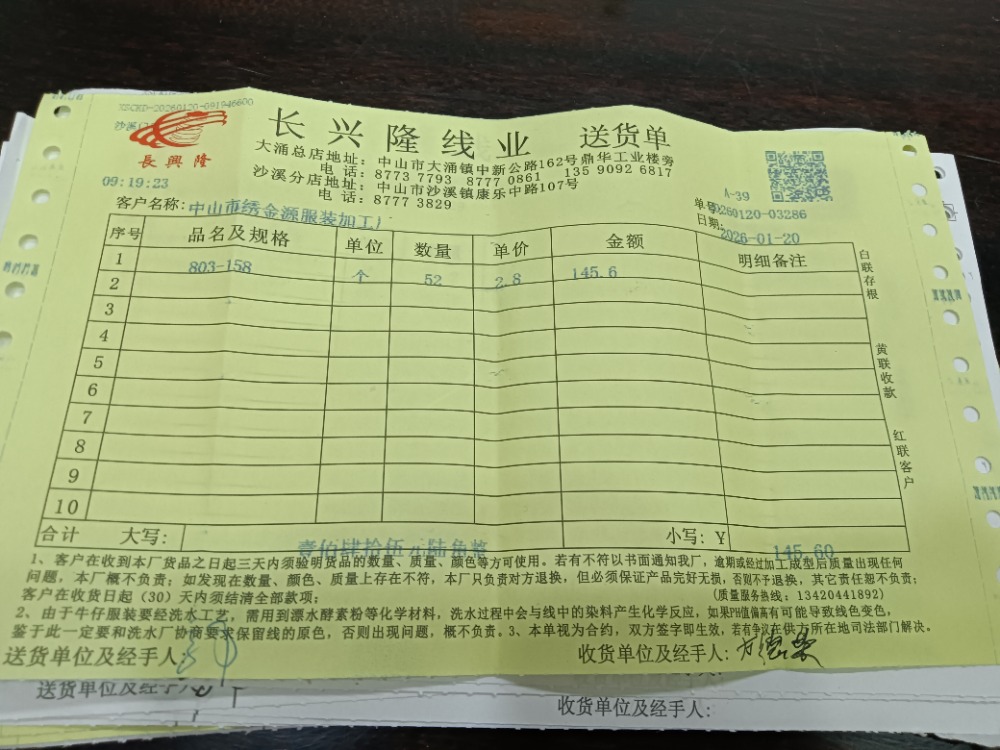 XSCKD-20260120-091946600
長興隆
长兴隆线业 送货单
大涌总店地址：中山市大涌镇中新公路162号鼎华工业楼旁
电话：8773 7793 8777 0861 135 9092 6817
沙溪分店地址：中山市沙溪镇康乐中路107号
电话：8777 3829
09:19:23
A-39
客户名称：中山市绣金源服装加工厂
单号：20260120-03286
日期：2026-01-20
序号 品名及规格 单位 数量 单价 金额 明细备注
1 803-158 个 52 2.8 145.6
2
3
4
5
6
7
8
9
10
合计 大写：壹佰肆拾伍元陆角整 小写：Y 145.60
白联存根
黄联收款
红联客户
1、客户在收到本厂货品之日起三天内须验明货品的数量、质量、颜色等方可使用。若有不符以书面通知我厂，逾期或经过加工成型后质量出现任何
问题，本厂概不负责；如发现在数量、颜色、质量上存在不符，本厂只负责对方退换，但必须保证产品完好无损，否则不予退换，其它责任恕不负责；
客户在收货日起（30）天内须结清全部款项； （质量服务热线：13420441892）
2、由于牛仔服装要经洗水工艺，需用到漂水酵素粉等化学材料，洗水过程中会与线中的染料产生化学反应，如果PH值偏高有可能导致线色变色，
鉴于此一定要和洗水厂协商要求保留线的原色，否则出现问题，概不负责。3、本单视为合约，双方签字即生效，若有争议在供方所在地司法部门解决。
送货单位及经手人： 收货单位及经手人：
送货单位及经手人 收货单位及经手人：